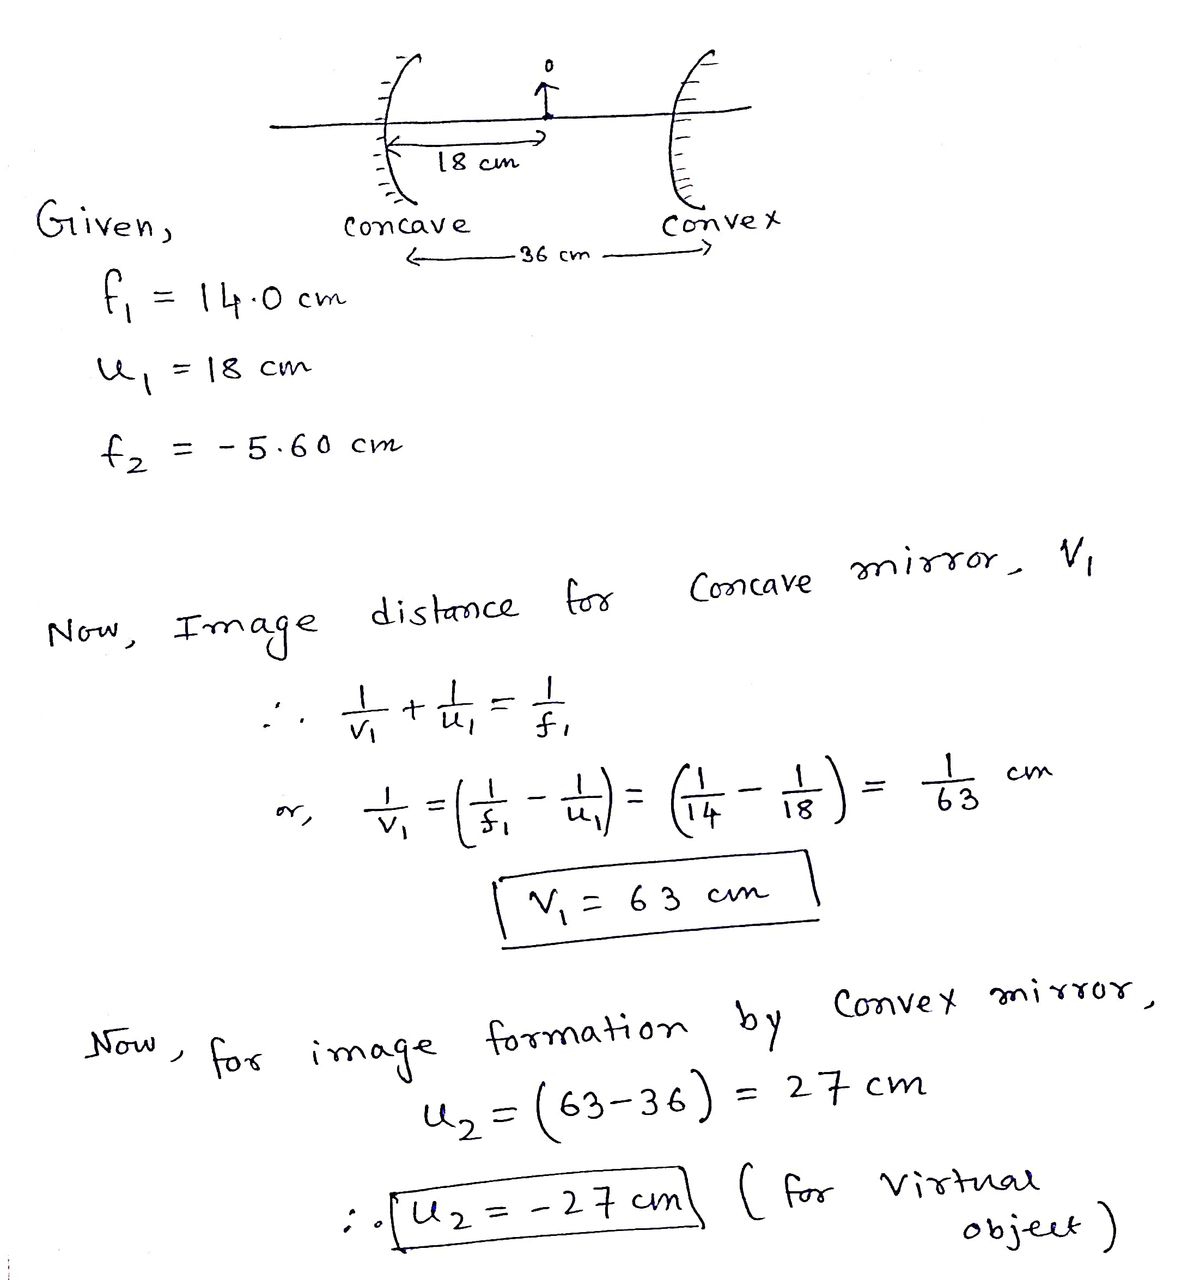 O
18 cm
Given,
concave
Convex
36 cm
f₁ = 14.0 cm
u₁ = 18 cm
f₂ = -5.60 cm
Now, Image distance for Concave mirror, V₁
∴ 1/V₁ + 1/u₁ = 1/f₁
or, 1/V₁ = (1/f₁ - 1/u₁) = (1/14 - 1/18) = 1/63 cm
V₁ = 63 cm
Now, for image formation by Convex mirror,
u₂ = (63-36) = 27 cm
∴ u₂ = -27 cm (for virtual
object)